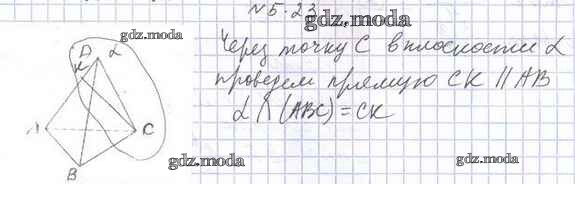 №5.23
gdz.moda
gdz.moda
Через точку C в плоскости α
проведем прямую CK || AB
α ∩ (ABC) = CK
D α
K
A C
B
gdz.moda
gdz.moda